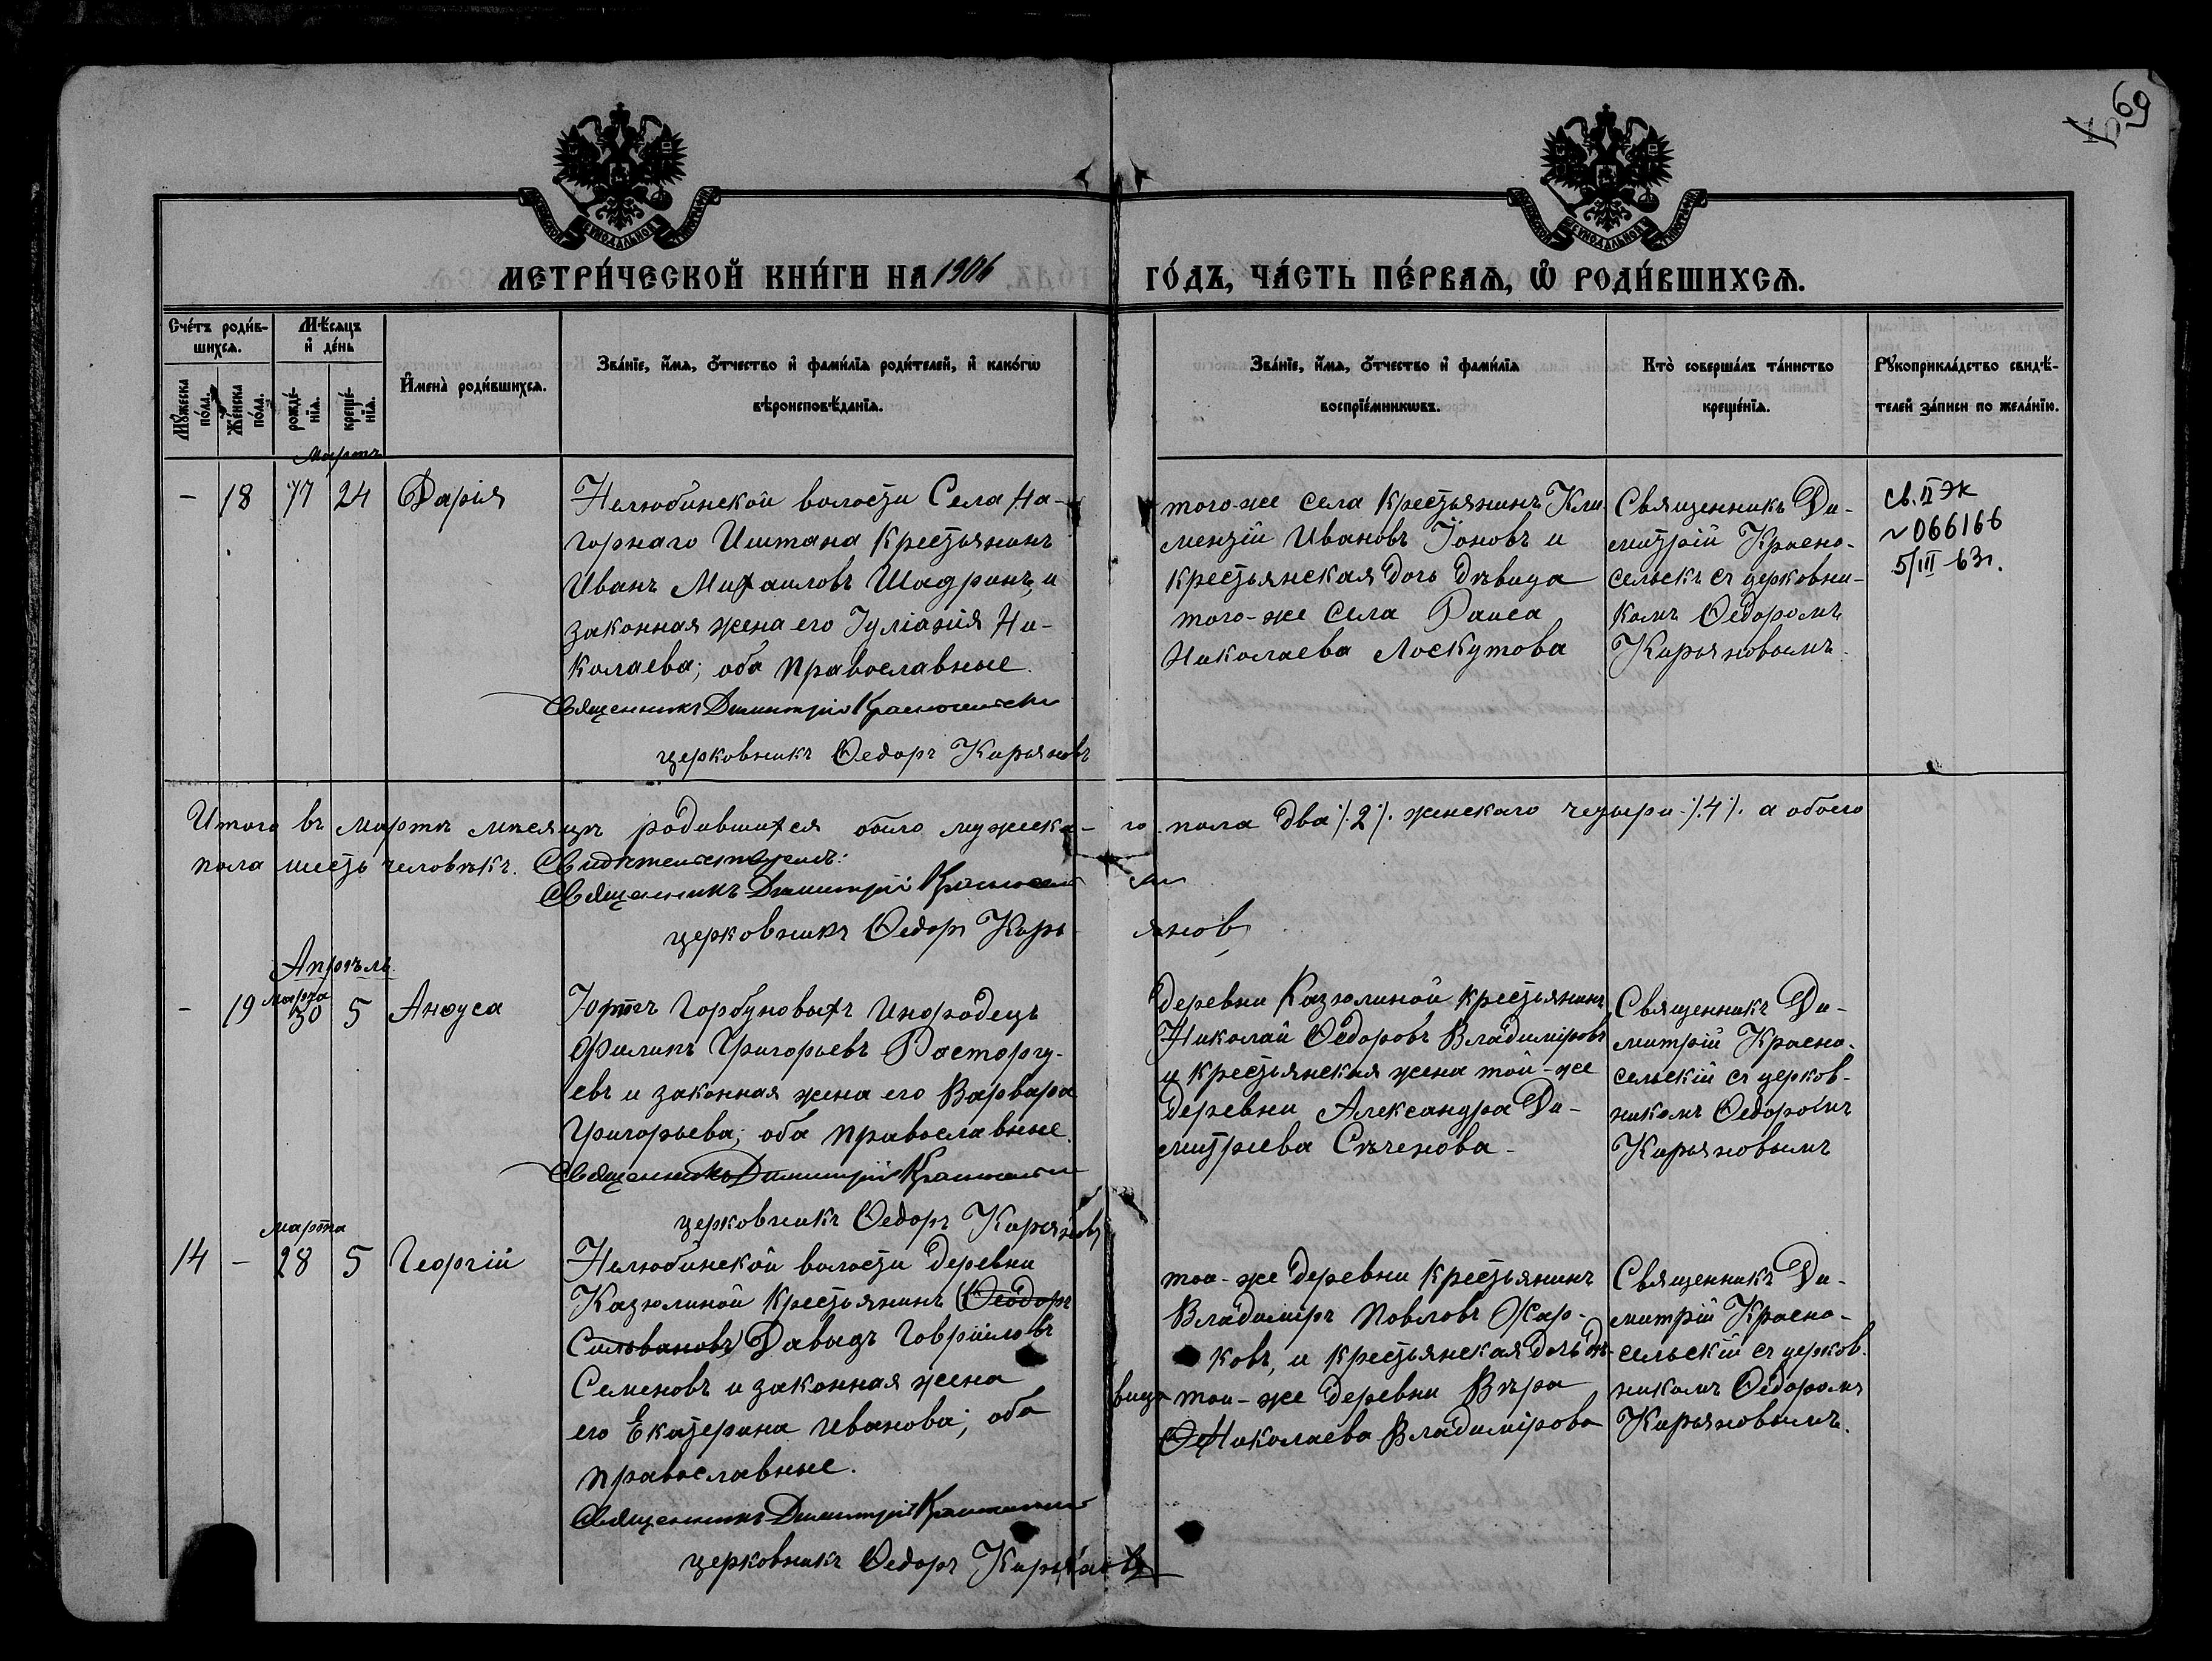 69
МЕТРИ́ЧЕСКОЙ КНИ́ГИ НА 1906
ГО́ДЪ, ЧА́СТЬ ПЕ́РВАѦ, Ѡ҆ РОДИ́ВШИХСѦ.
Сче́тъ роди́в-
шихсѧ.
Мѣ́сѧцъ
и҆ де́нь
Мꙋ́жеска
по́ла.
Же́нска
по́ла.
рожде́-
нїѧ.
креще́-
нїѧ.
И҆мена̀ роди́вшихсѧ.
Зва́нїе, и҆́мѧ, ѻ҆́тчество и҆ фами́лїѧ роди́телей, и҆ како́гѡ
вѣроисповѣ́данїѧ.
Зва́нїе, и҆́мѧ, ѻ҆́тчество и҆ фами́лїѧ
воспрїе́мникѡвъ.
Кто̀ соверша́лъ та́инство
креще́нїѧ.
Рꙋкоприкла́дство свидѣ́-
телей за́писи по жела́нїю.
Мартъ
- 18 17 24 Дарія
Нелюбинской волости Села На-
горнаго Иштана Крестьянинъ
Иванъ Михаиловъ Шадринъ, и
законная жена его Іуліанія Ни-
колаева; оба православные.
Священникъ Димитрій Красносельскій
церковникъ Ѳедоръ Кирьяновъ
того-же села Крестьянинъ Кли-
ментій Ивановъ Іоновъ и
крестьянская дочь дѣвица
того-же села Раиса
Николаева Лоскутова
Священникъ Ди-
митрій Красно-
сельскъ съ церковни-
комъ Ѳедоромъ
Кирьяновымъ.
св. II ЭК
~066166
5/III-63г.
Итого въ мартѣ мѣсяцѣ родившихся было мужска-
го пола два ⁒2⁒. женскаго четыри ⁒4⁒. а обоего
пола шесть человѣкъ. Свидѣтельствуемъ:
Священникъ Димитрій Красносельскій
церковникъ Ѳедоръ Кирьяновъ
Апрѣль.
- 19 марта 30 5 Анѳуса
Юртъ Горбуновыхъ Инородецъ
Филипъ Григорьевъ Расторгу-
евъ и законная жена его Варвара
Григорьева; оба православные.
Священникъ Димитрій Красносельскій
церковникъ Ѳедоръ Кирьяновъ
деревни Казюлиной крестьянинъ
Николай Ѳедоровъ Владиміровъ
и крестьянская жена той-же
деревни Александра Ди-
митриева Сѣченова-
Священникъ Ди-
митрій Красно-
сельскій съ церков-
никомъ Ѳедоромъ
Кирьяновымъ
14 - марта 28 5 Георгій
Нелюбинской волости деревни
Казюлиной Крестьянинъ (Ѳеодоръ
Сильвановъ) Давыдъ Гавріиловъ
Семеновъ и законная жена
его Екатерина Иванова; оба
православные.
Священникъ Димитрій Красносельскій
церковникъ Ѳедоръ Кирьяновъ
той-же деревни Крестьянинъ
Владиміръ Повловъ Жар-
ковъ, и крестьянская дочь дѣ-
вица той-же деревни Вѣра
Николаева Владимірова
Священникъ Ди-
митрій Красно-
сельскій съ церков-
никомъ Ѳедоромъ
Кирьяновымъ.